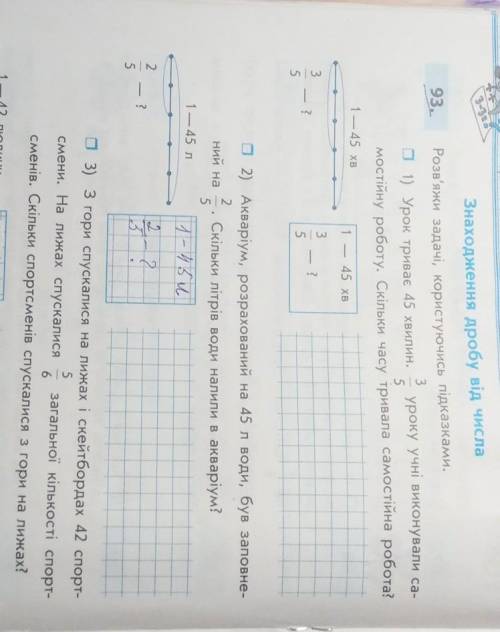 Знаходження дробу від числа
93.
Розв'яжи задачі, користуючись підказками.
1) Урок триває 45 хвилин. 3/5 уроку учні виконували са-
мостійну роботу. Скільки часу тривала самостійна робота?
1 — 45 хв
3/5 — ?
1 — 45 хв
3/5 — ?
2) Акваріум, розрахований на 45 л води, був заповне-
ний на 2/5. Скільки літрів води налили в акваріум?
1 — 45 л
2/5 — ?
1 - 45 л
2/5 - ?
3) З гори спускалися на лижах і скейтбордах 42 спорт-
смени. На лижах спускалися 5/6 загальної кількості спорт-
сменів. Скільки спортсменів спускалися з гори на лижах?